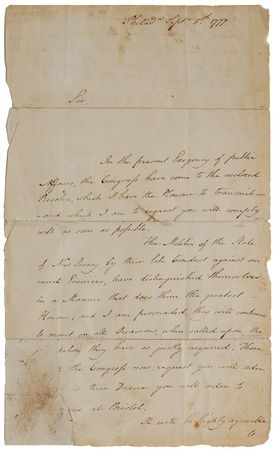 Philada. Septr. 5th. 1777.
Sir,
In the present Exigency of public
Affairs, the Congress have come to the inclosed
Resolve, which I have the Honour to transmit—
—and which I am to request you will comply
with as soon as possible.
The Militia of the State
of New Jersey by their late Conduct against our
cruel Enemies, have distinguished themselves
in a Manner that does them the greatest
Honour; and I am persuaded, they will continue
to merit on all Occasions, when called upon the
tation they have so justly acquired. Those
the Congress now request you will order
is their Desire you will order to
at Bristol.
It will be highly agreeable
to